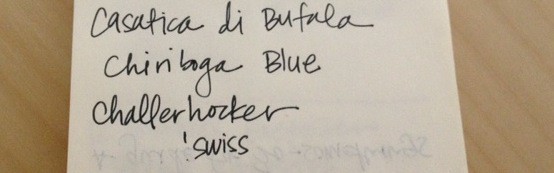 Casatica di Bufala
Chiriboga Blue
Challerhocker
'swiss